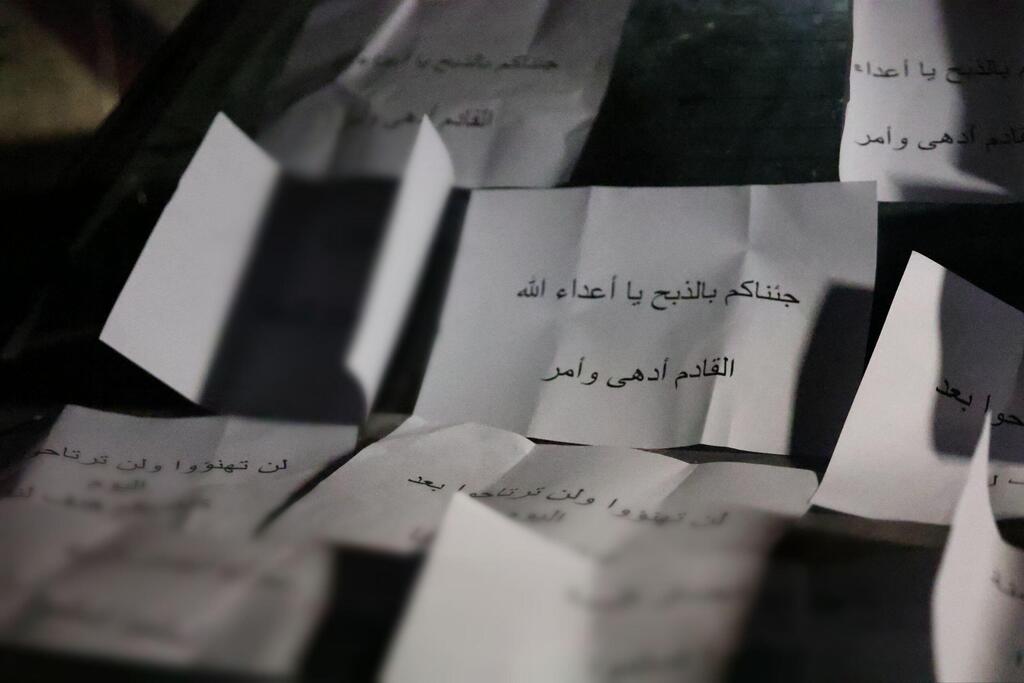 جئناكم بالذبح يا أعداء
القادم أدهى
بالذبح يا أعداء
القادم أدهى وأمر
جئناكم بالذبح يا أعداء الله
القادم أدهى وأمر
حوا بعد
لن تهنؤوا ولن ترتاحوا
اليوم
لن تهنؤوا ولن ترتاحوا بعد
اليوم